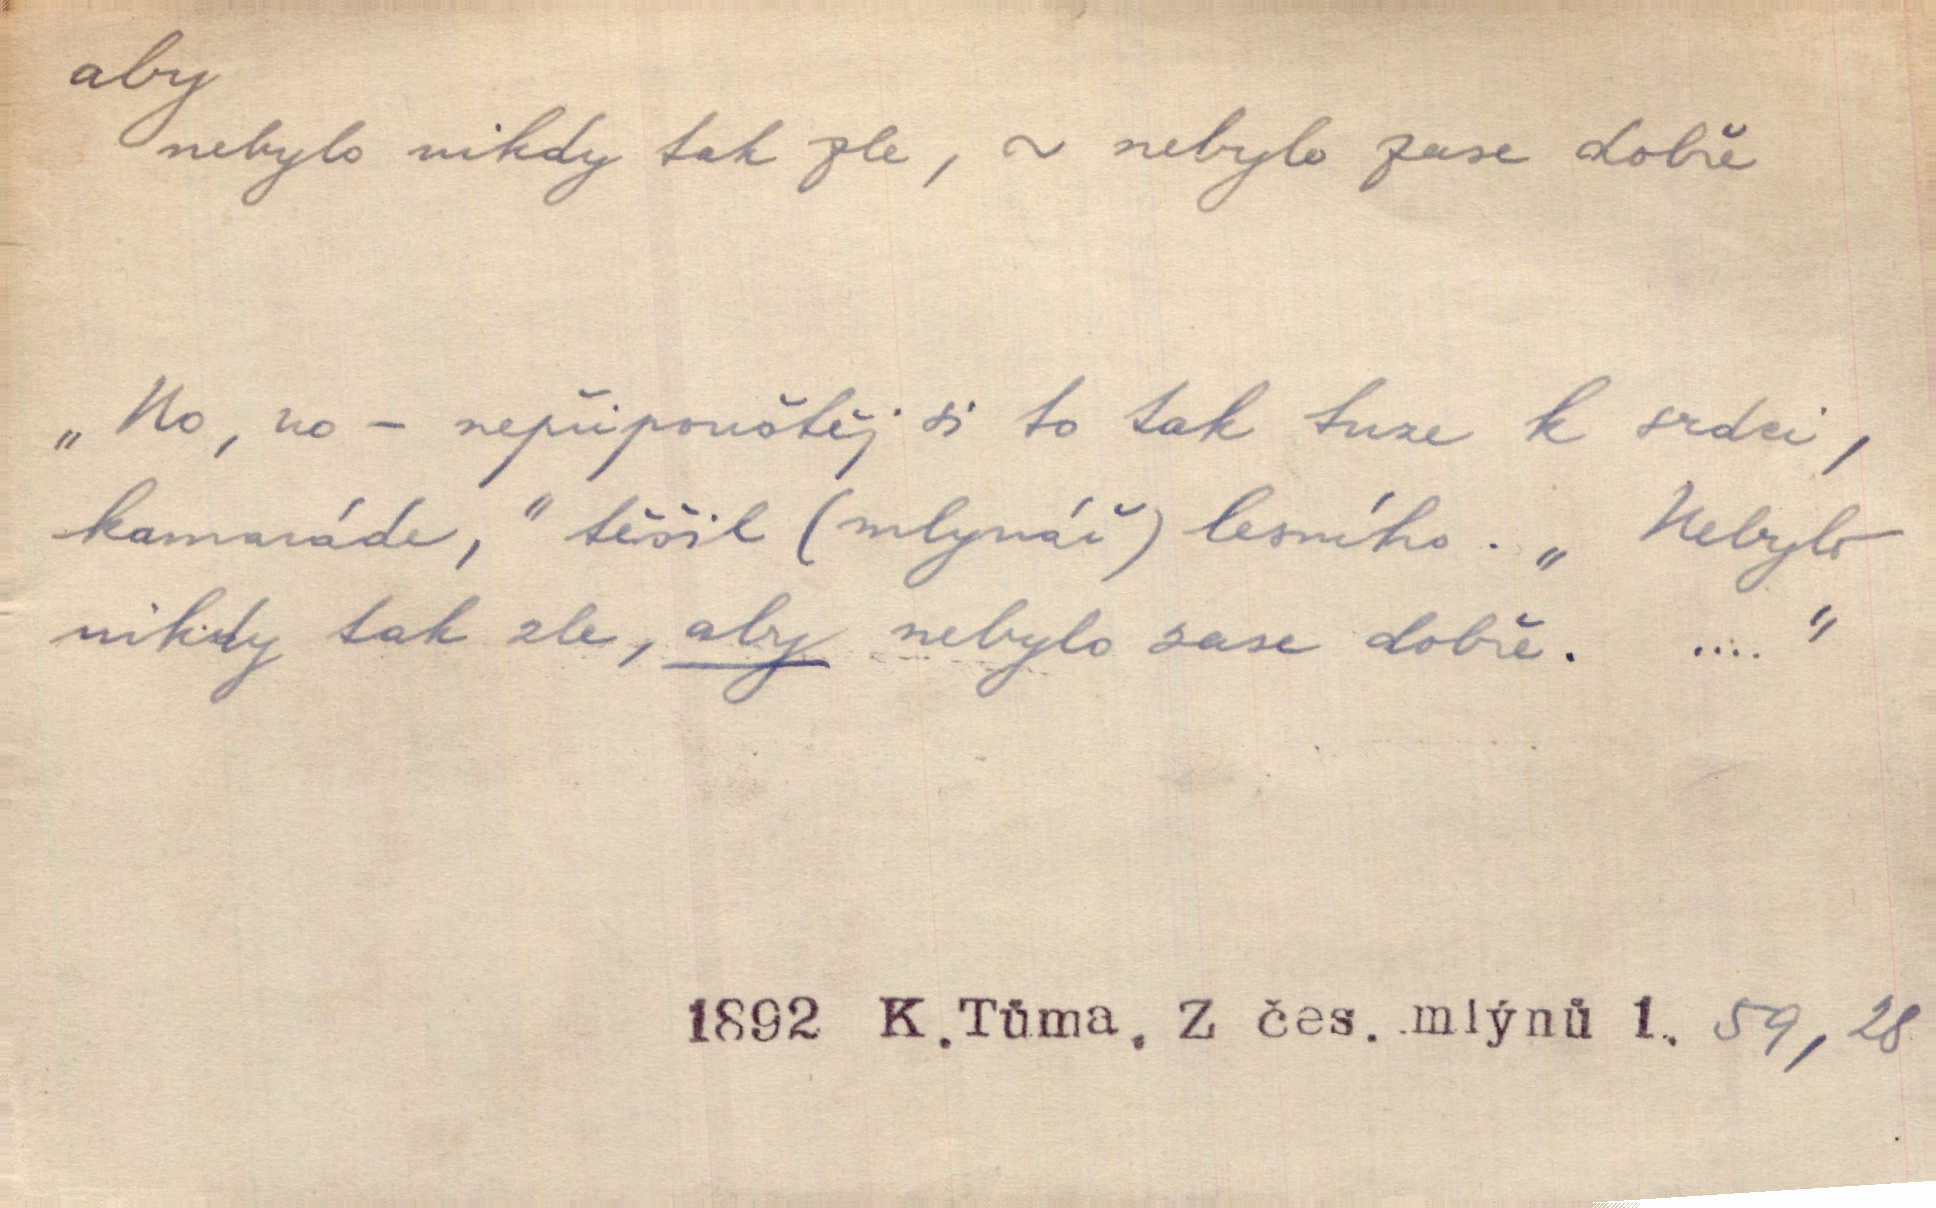 aby
nebylo nikdy tak zle, ~ nebylo zase dobře
„No, no – nepřipouštěj si to tak tuze k srdci,
kamaráde,“ těšil (mlynář) lesního. „Nebylo
nikdy tak zle, aby nebylo zase dobře. ....“
1892 K.Tůma, Z čes. mlýnů 1. 59, 28